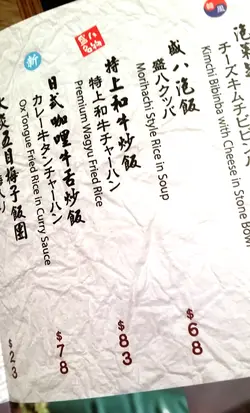 韓風
チーズキムチビビン
Kimchi Bibinba with Cheese in Stone Bowl
盛八泡飯
盛八クッパ
Morihachi Style Rice in Soup
$68
盛八名物
特上和牛炒飯
特上和牛チャーハン
Premium Wagyu Fried Rice
$83
新
日式咖哩牛舌炒飯
カレー牛タンチャーハン
Ox Tongue Fried Rice in Curry Sauce
$78
五目梅子飯團
$23